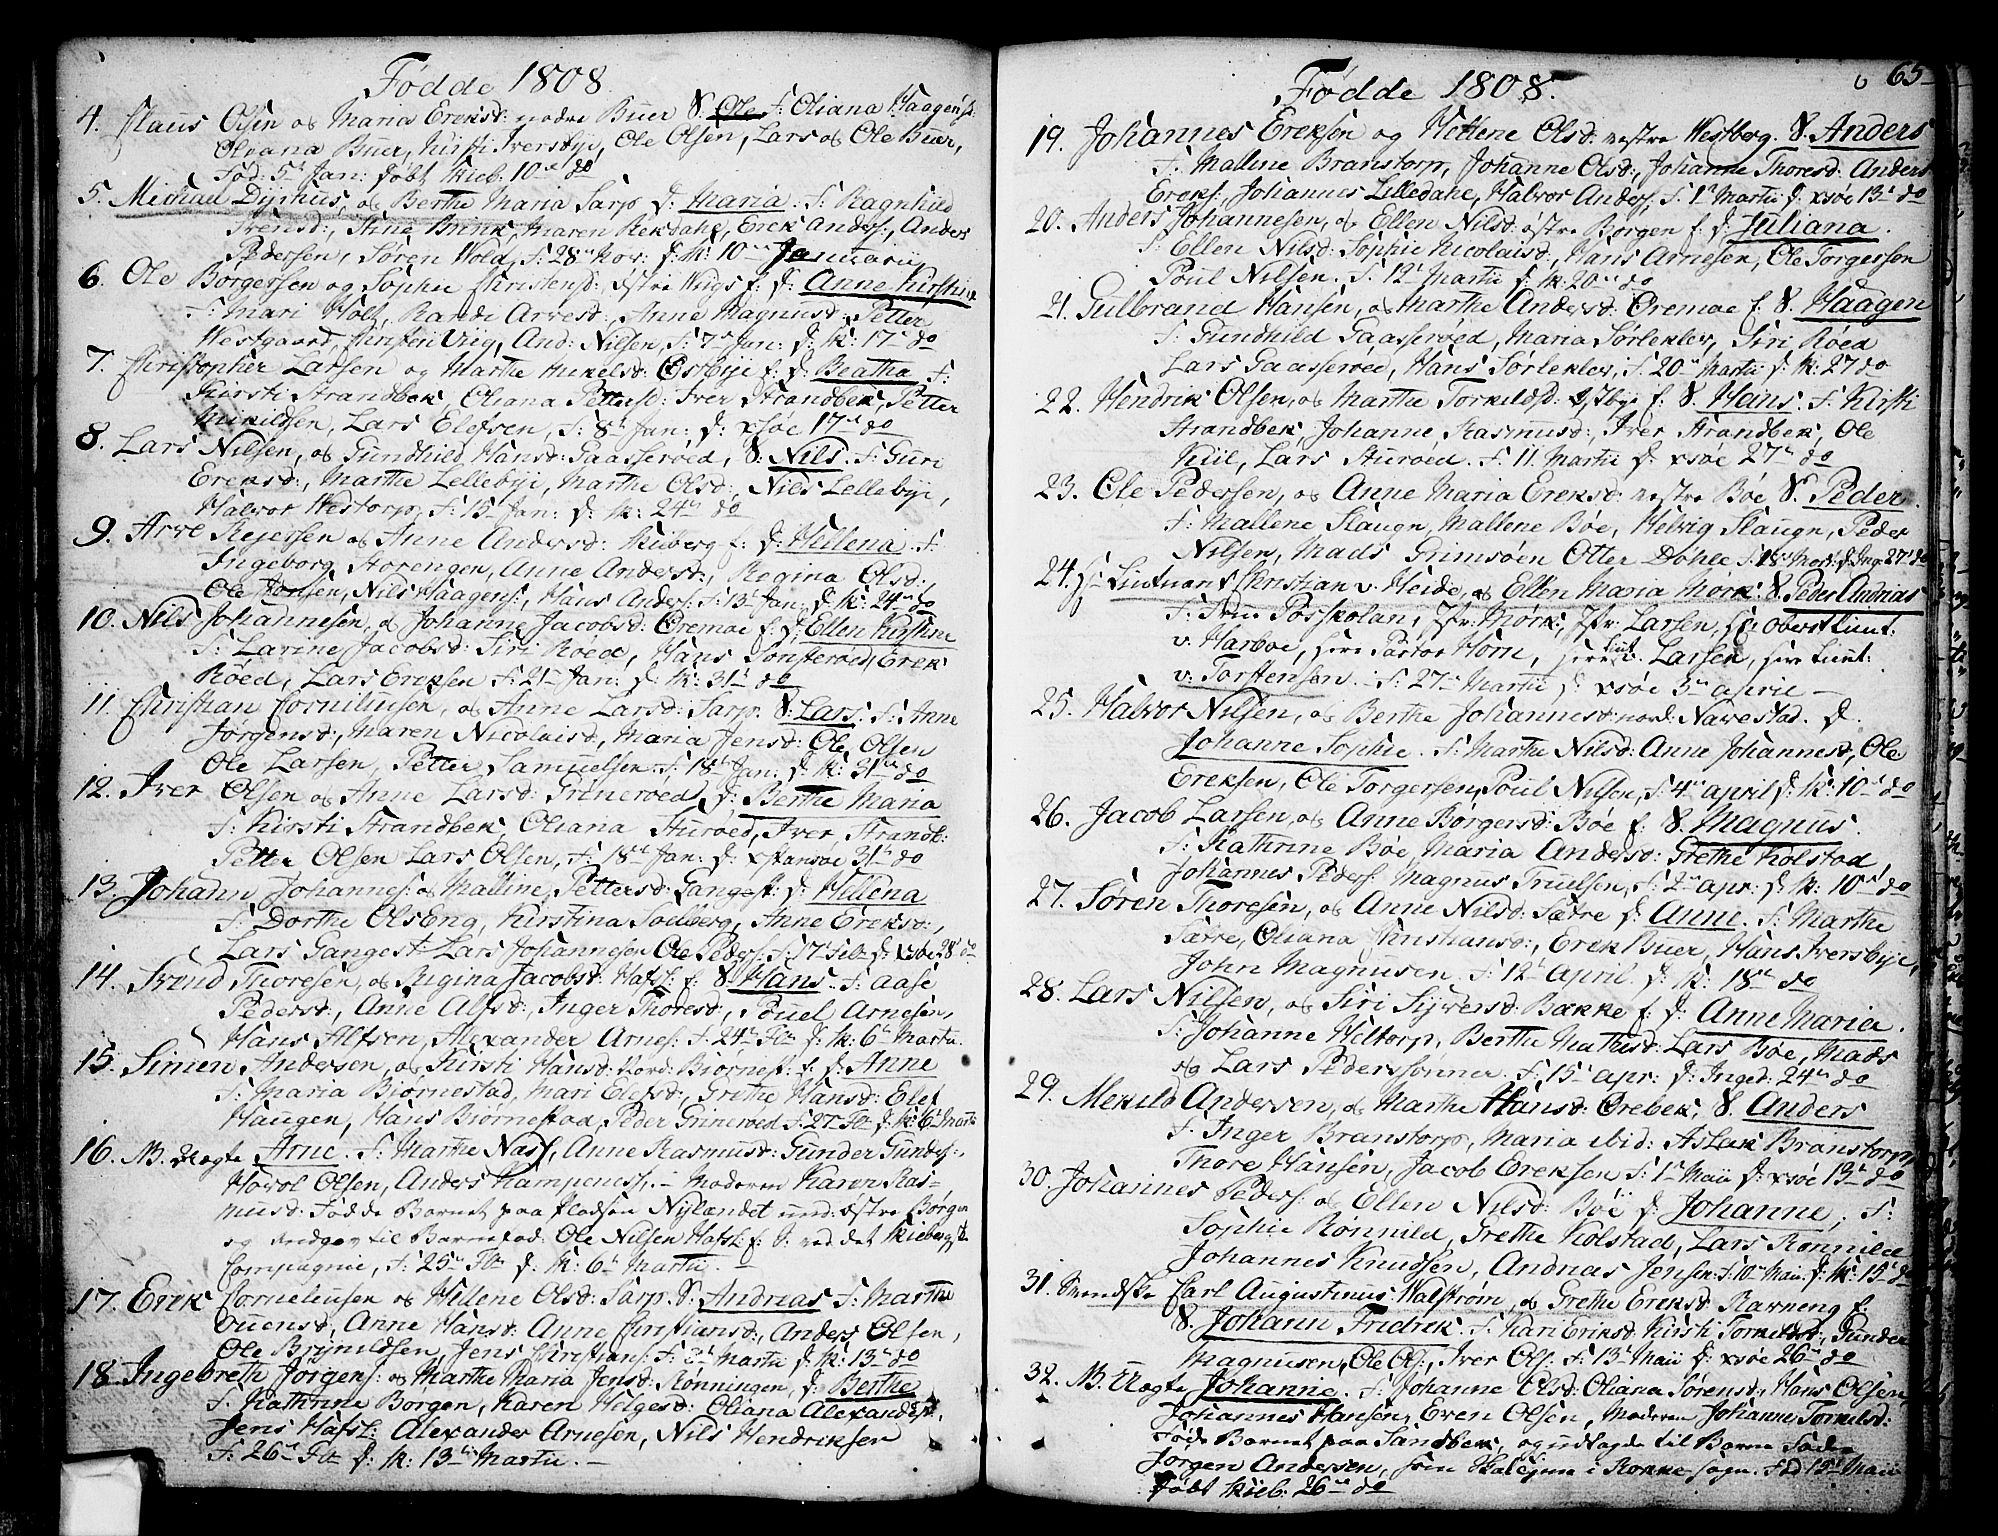 Fødde 1808.
4. Claus Olsen og Maria Ereksd: nedre Buer S. Ole F: Oliana Haagensd:
Oleana Buer, Kirsti Iversbye, Ole Olsen, Lars og Ole Buer,
Fød: 5t Jan: døbt Skieb. 10de do
5. Michael Dyrhus, og Berthe Maria Sarp D: Maria. F: Ragnhild
Svensd:, Stine Brink, Maren Rekdahl, Erek Anders:, Anders
Pedersen, Søren Wold, F: 28de Nov: D: K: 10de Januarii
6. Ole Børgersen og Sophie Christensd:, østre f: D: Anne Kirstine
F: Mari Holt, Randi Arvesd:, Anne Magnusd: Petter
Westgaard, And: Nilsen, F: 7de Jan: D: K: 17de do
7. Christopher Larsen og Marthe Mikelsd: Østbye f: D: Beatha F:
Kirsti Strandbek, Oliana Pettersd: Iver Strandbek, Petter
Mikildsen, Lars Elefsen, F: 8de Jan: D: xsøe 17de do
8. Lars Nilsen, og Gundhild Hansd: Gaasserøed, S. Nils. F: Guri
Ereksd:, Marthe Lellebye, Marthe Olsd:, Nils Lellebye,
Halvor Westorp, F: 15de Jan: D: K: 24de do
9. Arve Rejersen og Anne Andersd: Skiberg f: D: Hellena F:
Ingeborg Storengen, Anne Andersd:, Regina Olsd:,
Ole Jonsen, Nils Haagens:, Hans Anders: F: 13de Jan, D: K: 24de do
10. Nils Johannesen, og Johanne Jacobsd: Oremoe f: D: Ellen Kirstine
F: Larine Jacobsd: Siri Røed, Hans Tonsterøed, Erek
Røed, Lars Ereksen F: 21de Jan: D: K: 31de do
11. Christian Corneliusen, og Anne Larsd: Sarp. S. Lars. F: Anne
Jørgensd:, Maren Nicolaisd, Maria Jensd: Ole Olsen
Ole Larsen, Petter Samuelsen. F: 18de Jan: D: K: 31de do
12. Iver Olsen og Anne Larsd: Grinerøed D: Berthe Maria
F: Kirsti Strandbek, Oliana Sturøed, Iver Strandb:
Petter Olsen Lars Olsen, F: 18de Jan: D: xstansøe 31de do
13. Johann Johannes: og Malline Pettersd: Gangest: D: Hellena
F: Dorthe Olseng, Kirstina Soelberg, Anne Ereksd:,
Lars Gangest Lars Johannesen Ole Peders: F: 17de Feb: D: xsøe 28de do
14. Svend Thoresen, og Regina Jacobsd: Hafsl: f: S. Hans. F: Aase
Pedersd:, Anne Alfsd:, Inger Thoresd:, Pouel Arnesen,
Hans Alfsen, Alexander Arnes: F: 24de Feb: D: K: 6de Martii
15. Simen Andersen, og Kirsti Hansd: Nord: Biørnest: f: D: Anne
F: Maria Biørnestad, Mari Elefsd:, Grethe Hansd: Elef
Haugen, Hans Biørnestad, Peder Grinerøed F: 27 Feb: D: K: 6de Martii
16. NB. Uægte Arne. F: Marthe Næss, Anne Rasmusd: Gunder Gunders:,
Hovel Olsen, Anders Kampenes:. — Moderen Karen Ras=
musd: Fødde Barnet paa Pladsen Nylandet und: østre Børgen
og Audgav til Barnefad: Ole Nilsen Hafsl: f: S: ved det Skiebergske
Compagnie, F: 25de Feb: D: K: 6de Martii. —
17. Erek Corneliusen og Hellene Olsd: Sarp. S. Andreas F: Marthe
Ouensd:, Anne Hansd: Anne Christiansd:, Anders Olsen,
Ole Brynildsen, Jens Christians: F: 2de Martii D: K: 13de do
18. Ingebreth Jørgens: og Marthe Maria Jensd: Rønningen, D: Berthe
F: Kathrine Børgen, Karen Helgesd: Oliana Alexandersd:,
Jens Hafsl: Alexander Arnesen, Nils Hendriksen
F: 26de Feb: D: K: 13de Martii. —
Fødde 1808.
65
19. Johannes Ereksen og Hellene Olsd: vestre Westberg. S. Anders
F: Mallene Branstorp, Johanne Olsd:, Johanne Thoresd: Anders
Ereks:, Johannes Lilledahl, Halvor Anders, F: 1de Martii D: xsøe 13de do
20. Anders Johannesen, og Ellen Nilsd: østre Borgen f: D: Juliana.
F: Ellen Nilsd: Sophie Nicolaisd:, Hans Arnesen, Ole Torgersen
Poul Nilsen. F: 12de Martii D: K: 20de do
21. Gulbrand Hansen, og Marthe Andersd: Oremoe f: S. Haagen
F: Gundhild Gaasserøed, Maria Sørleklev, Siri Røed
Lars Gaasserøed, Hans Sørleklev, F: 20de Martii D: K: 27 do
22. Hendrik Olsen, og Marthe Torkildsd: Isbye f: S. Hans. F: Kirsti
Strandbek, Johanne Rasmusd:, Iver Strandbek, Ole
Kiil, Lars Sturøed. F: 11. Martii D: xsøe 27de do
23. Ole Pedersen, og Anne Maria Ereksd: vestre Bøe S. Peder.
F: Mallene Slaugn, Mallene Bøe, Helvig Slaugn, Peder
Nilsen, Mads Grimsøen Otter Dohle F: 18de Mart: D: Inge: 27de do
24. Hr Lieutnant Christian v: Heide, og Ellen Maria Mørk: S. Peder Andreas
F: Frue Posskolan, Jfr: Mørk:, Jfr: Larsen, Hr: Oberstlieut:
v: Harboe, Herr Pastor Horn, Herr Lieut. Larsen, Herr Lieut:
v: Torstensen. — F: 27de Martii D: xsøe 3de April —
25. Halvor Nilsen, og Berthe Johannesd: nord: Navestad. D.
Johanne Sophie. F: Marthe Nilsd: Anne Johannesd:, Ole
Ereksen, Ole Torgersen, Poul Nilsen, F: 4de April D: K: 10de do
26. Jacob Larsen, og Anne Børgersd: Bøe f: S. Magnus.
F: Kathrine Bøe, Maria Andersd: Grethe Kolstad,
Johannes Peders: Magnus Truelsen, F: 2de Apr: D: K: 10de do
27. Søren Thoresen, og Anne Nilsd: Sætre D: Anne. F: Marthe
Sætre, Oliana Christiansd:, Erek Buer, Hans Iversbye,
John Magnusen. F: 12de April. D: K: 18de do
28. Lars Nilsen, og Siri Syversd: Bække f: D: Anne Maria.
F: Johanne Heltorp, Berthe Mathisd: Lars Bøe, Mads
og Lars Pederssønner. F: 15de Apr: D: Inged: 24de do
29. Mekild Andersen, og Marthe Hansd: Ørebek, S. Anders
F: Inger Branstorp, Maria ibid: Aslak Branstorp,
Thore Hansen, Jacob Ereksen F: 1de Maii D: xsøe 13de do
30. Johannes Peders: og Ellen Nilsd: Bøe D: Johanne, F:
Sophie Rønnild, Grethe Kolstad, Lars Rønnild
Johannes Knudsen, Andreas Jensen: F: 10de Maii D: K: 15de do
31. Svendske Carl Augustinus Walstrøm, og Grethe Ereksd: Ravneng f:
S. Johann Fredrik. F: Kari Eriksd: Kirsti Torkildsd:, Gunder
Magnusen, Ole Ols:, Iver Ols: F: 13de Maii D: xsøe 26de do
32. NB. Uægte Johanne. F: Johanne Olsd: Oliana Sørensd:, Hans Olsen,
Johannes Hansen, Even Olsen, Moderen Johanne Torkildsd:
Føde Barnet paa Sandbek, og udlagde til Barne Fader
Jørgen Andersen, fra i Rokke sogn. Fød 15de Maii
Døbt Skieb: 26de do